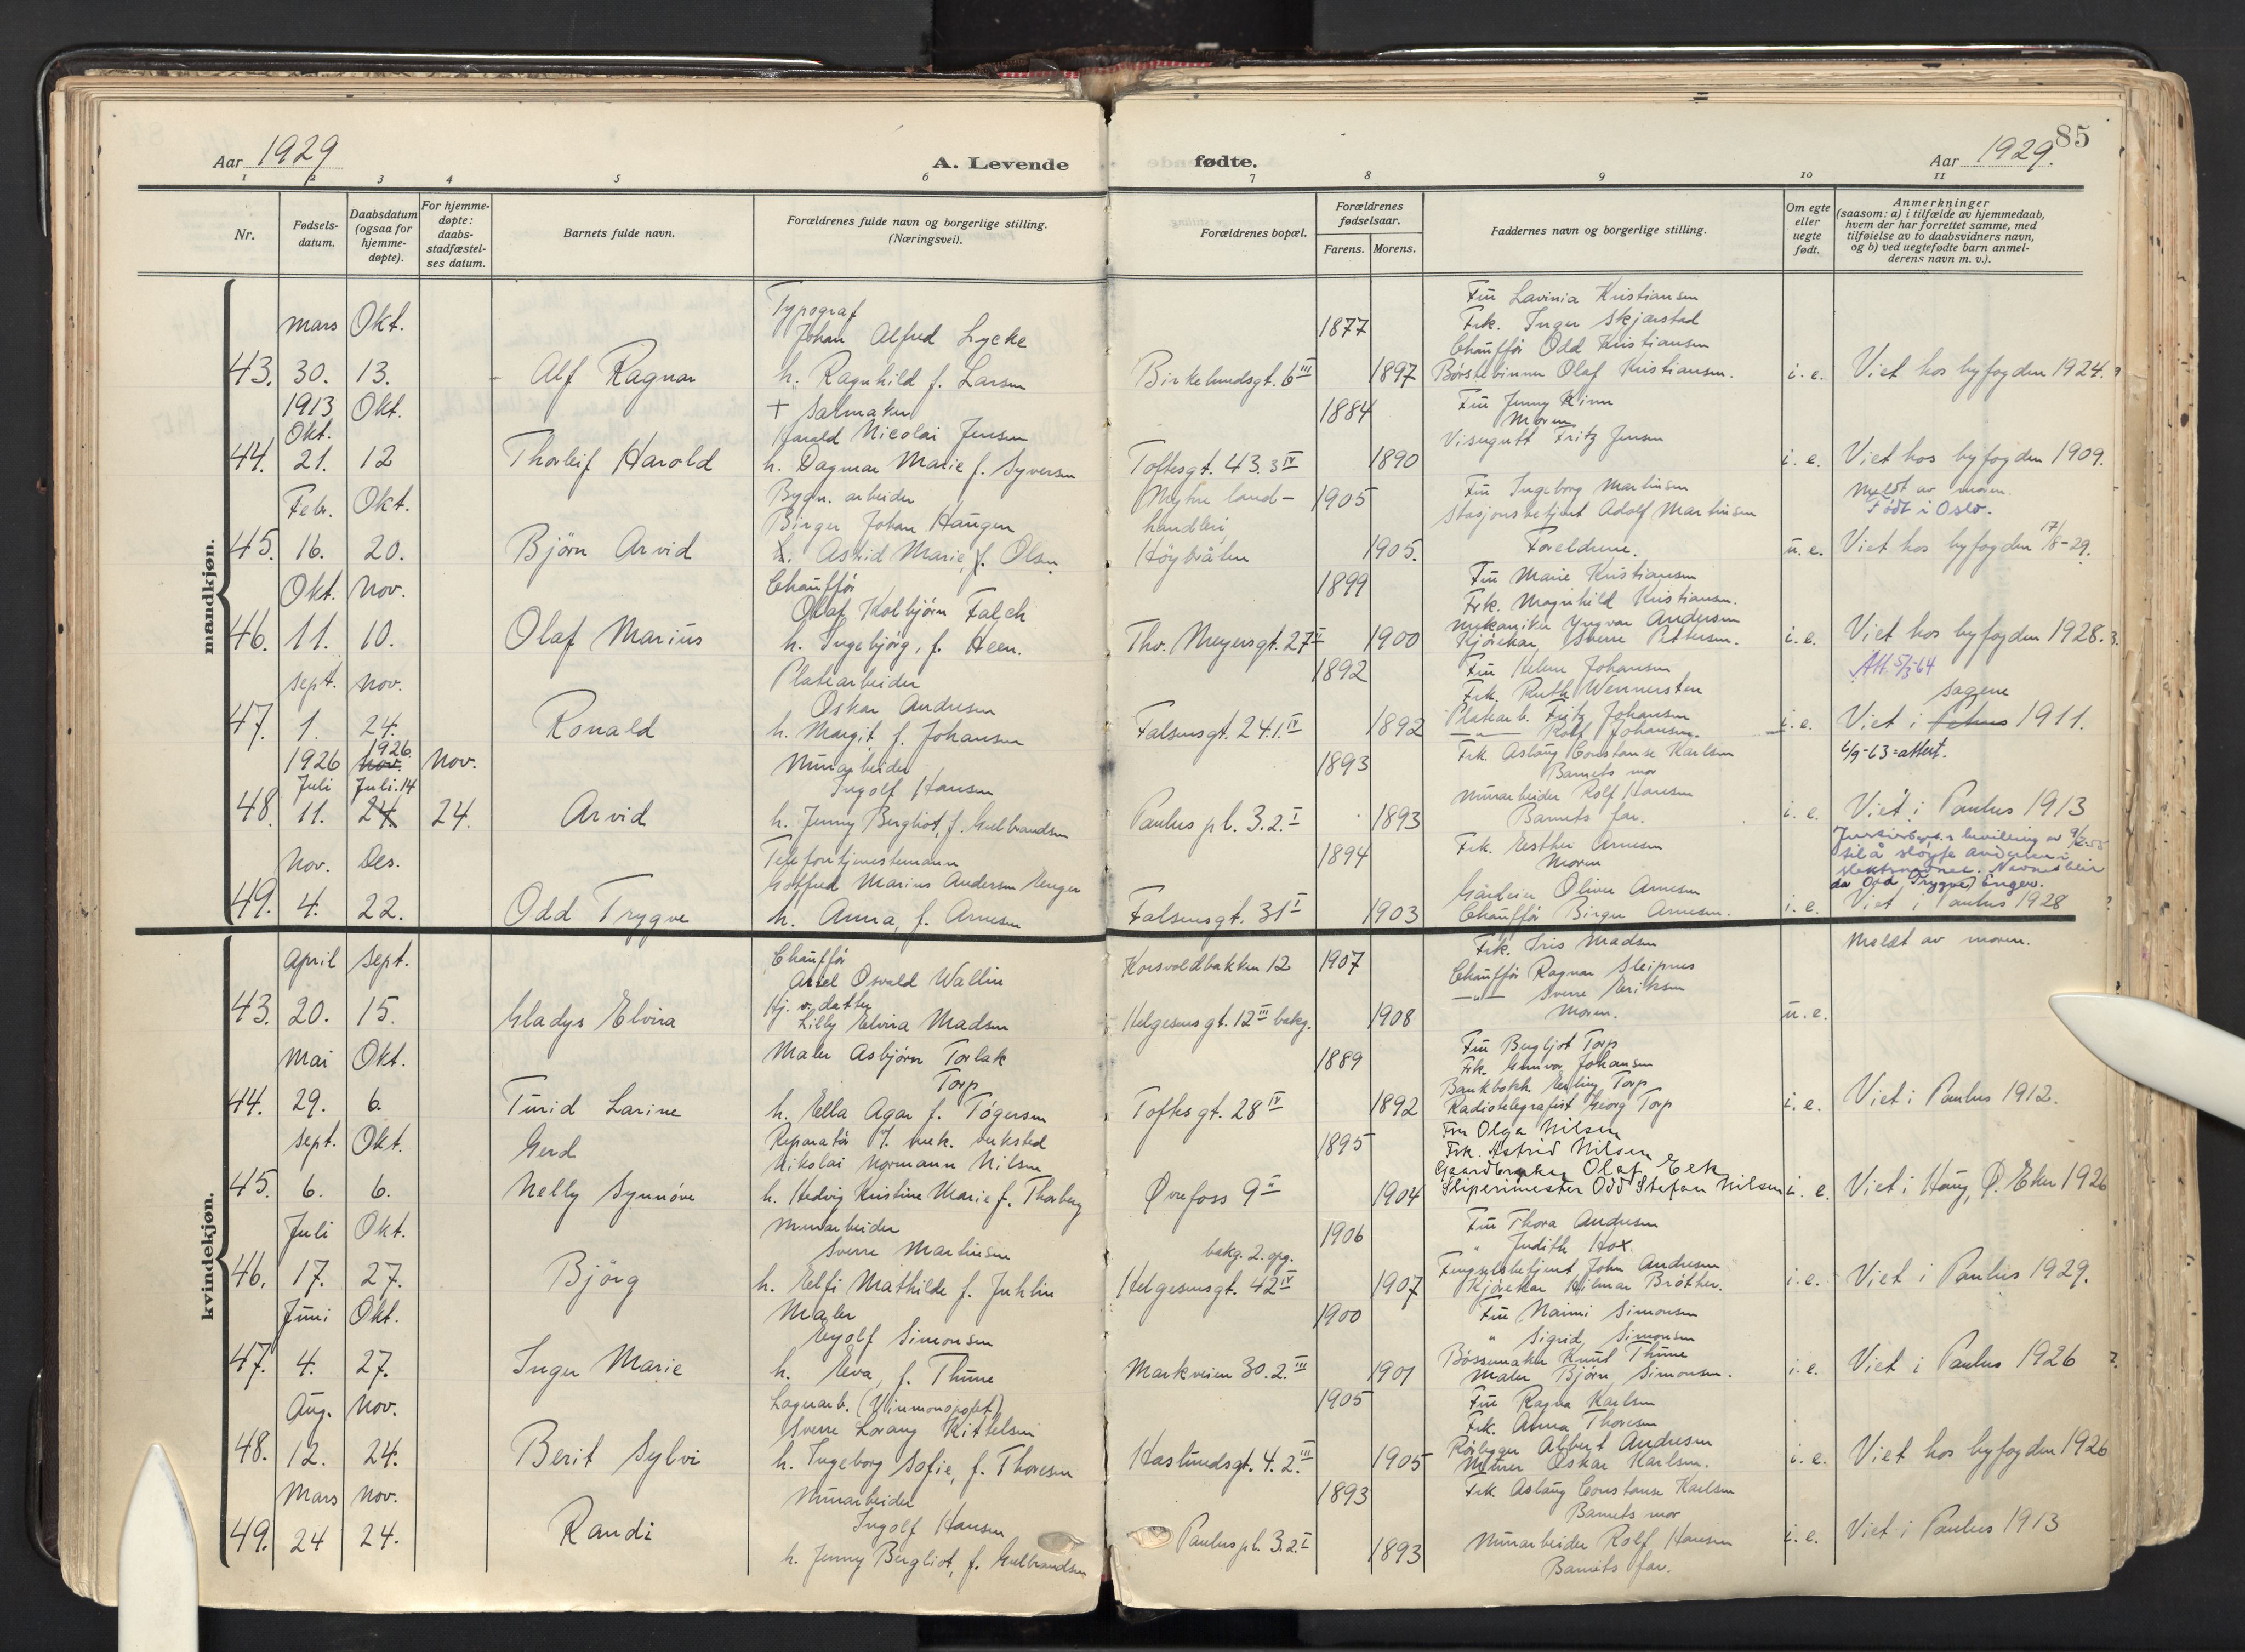 85
Aar 1929
A. Levende
fødte.
Aar 1929.
1 2 3 4 5 6 7 8 9 10 11
Nr.
Fødsels-
datum.
Daabsdatum
(ogsaa for
hjemme-
døpte).
For hjemme-
døpte:
daabs-
stadfæstel-
ses datum.
Barnets fulde navn.
Forældrenes fulde navn og borgerlige stilling.
(Næringsvei).
Forældrenes bopæl.
Forældrenes
fødselsaar.
Farens. Morens.
Faddernes navn og borgerlige stilling.
Om egte
eller
uegte
født.
Anmerkninger
(saasom: a) i tilfælde av hjemmedaab,
hvem der har forrettet samme, med
tilføielse av to daabsvidners navn,
og b) ved uegtefødte barn anmel-
derens navn m. v.).
mandkjøn.
Mars Okt.
43. 30. 13.
Alf Ragnar
Typograf
Johan Alfred Lycke
h. Ragnhild f. Larsen
Birkelundsgt. 6 III
1877
1897
Fru Lavinia Kristiansen
Frk. Inger Skjærstad
Chauffør Odd Kristiansen
Børstebinder Olaf Kristiansen.
i. e.
Viet hos byfogden 1924.
1913 Okt.
Okt.
44. 21. 12
Thorleif Harold
+ Salmaker
Harald Nicolai Jensen
h. Dagmar Marie f. Syversen
Toftesgt. 43. 3 IV
1884
1890
Fru Jenny Rinn
Moren
Visergutt Fritz Jensen
i. e.
Viet hos byfogden 1909.
Meldt av moren.
Født i Oslo.
Febr. Okt.
45. 16. 20.
Bjørn Arvid
Bygn. arbeider
Birger Johan Haugen
h. Astrid Marie, f. Olsen
Myhre land-
handleri
Høybråten
1905
1905.
Fru Ingeborg Martinsen
Stasjonsbetjent Adolf Martinsen
Foreldrene.
u. e.
Viet hos byfogden 17/8-29.
Okt. Nov.
46. 11. 10.
Olaf Marius
Chauffør
Olaf Kolbjørn Falch
h. Ingebjørg, f. Heen.
Thv. Meyersgt. 27 II
1899
1900
Fru Marie Kristiansen
Frk. Magnhild Kristiansen.
Mekaniker Yngvar Andersen
Kjørekar Sverre Pettersen.
i. e.
Viet hos byfogden 1928.
Att. 5/3-64
Sept. Nov.
47. 1. 24.
Ronald
Platearbeider
Oskar Andresen
h. Margit f. Johansen
Falsensgt. 24 1. IV
1892
1892
Fru Helene Johansen
Frk. Ruth Wennersten
Platearb. Fritz Johansen
—"— Rolf Johansen.
i. e.
Sagene
Viet i Petrus 1911.
6/9-63 = attest.
1926 1926 Nov.
Juli Nov. Juli.14
48. 11. 24. 24.
Arvid
Murarbeider
Ingolf Hansen
h. Jenny Bergliot, f. Gulbrandsen
Paulus pl. 3.2. I
1893
1893
Frk. Aslaug Constanse Karlsen
Barnets mor
Murarbeider Rolf Hansen
Barnets far.
i. e.
Viet i Paulus 1913
Nov. Des.
49. 4. 22.
Odd Trygve
Telefontjenestemann
Gotfred Marius Andersen Enger
h. Anna, f. Arnesen
Falsensgt. 31 I
1894
1903
Frk. Esther Arnesen
Moren
Gårdeier Oliver Arnesen
Chauffør Birger Arnesen.
i. e.
Justisdept.s bevilling av 9/2-55
til å sløyfe Andersen i
slektsnavnet. Navnet blir
da Odd Trygve Enger.
Viet i Paulus 1928
kvindekjøn.
April Sept.
43. 20. 15.
Gladys Elvira
Chauffør
Axel Osvald Wallin
Hj. v. datter
Lilly Elvira Madsen
Korsvoldbakken 12
Helgesensgt. 12 III bakg.
1907
1908
Frk. Iris Madsen
Chauffør Ragnar Sleipnes
—"— Sverre Eriksen
Moren.
u. e.
Meldt av moren.
Mai Okt.
44. 29. 6.
Turid Larine
Maler Asbjørn Torlak
Torp
h. Ella Agar f. Tøgersen
Toftesgt. 28 IV
1889
1892
Fru Bergljot Torp
Frk. Gunvor Johansen
Bankbokh. Erling Torp
Radiotelegrafist Georg Torp
i. e.
Viet i Paulus 1912.
Sept. Okt.
45. 6. 6.
Gerd
Nelly Synnøve
Reparatør v. mek. verksted
Nikolai Normann Nilsen
h. Hedvig Kristine Marie f. Thorberg
Øvrefoss 9 II
1895
1904
Fru Olga Nilsen
Frk. Astrid Nilsen
Gaardbruker Olaf Eek
Sliperimester Odd Stefan Nilsen
i. e.
Viet i Haug, Ø. Eker 1926
Juli Okt.
46. 17. 27.
Bjørg
Murarbeider
Sverre Martinsen
h. Elfi Mathilde f. Juhlin
bakg. 2. opg.
Helgesensgt. 42 IV
1906
1907
Fru Thora Andresen
" Judith Hox.
Fengselsbetjent John Andresen
Kjørekar Hilmar Bråthen.
i. e.
Viet i Paulus 1929.
Juni Okt.
47. 4. 27.
Inger Marie
Maler
Eyolf Simonsen
h. Eva, f. Thune
Markveien 30. 2. III
1900
1901
Fru Naimi Simonsen
" Sigrid Simonsen
Bøssemaker Knut Thune
Maler Bjørn Simonsen.
i. e.
Viet i Paulus 1926
Aug. Nov.
48. 12. 24.
Berit Sylvi
Lagerarb. (Vinmonopolet)
Sverre Lorang Kittelsen
h. Ingeborg Sofie, f. Thoresen
Haslundsgt. 4. 2. III
1905
1905
Fru Ragna Karlsen
Frk. Anna Thoresen
Rørlegger Albert Andresen
Murer Oskar Karlsen.
i. e.
Viet hos byfogden 1926
Mars Nov.
49. 24 24.
Randi
Murarbeider
Ingolf Hansen
h. Jenny Bergliot, f. Gulbrandsen
Paulus pl. 3.2. I
1893
1893
Frk Aslaug Constanse Karlsen
Barnets mor
Murarbeider Rolf Hansen
Barnets far.
i. e.
Viet i Paulus 1913